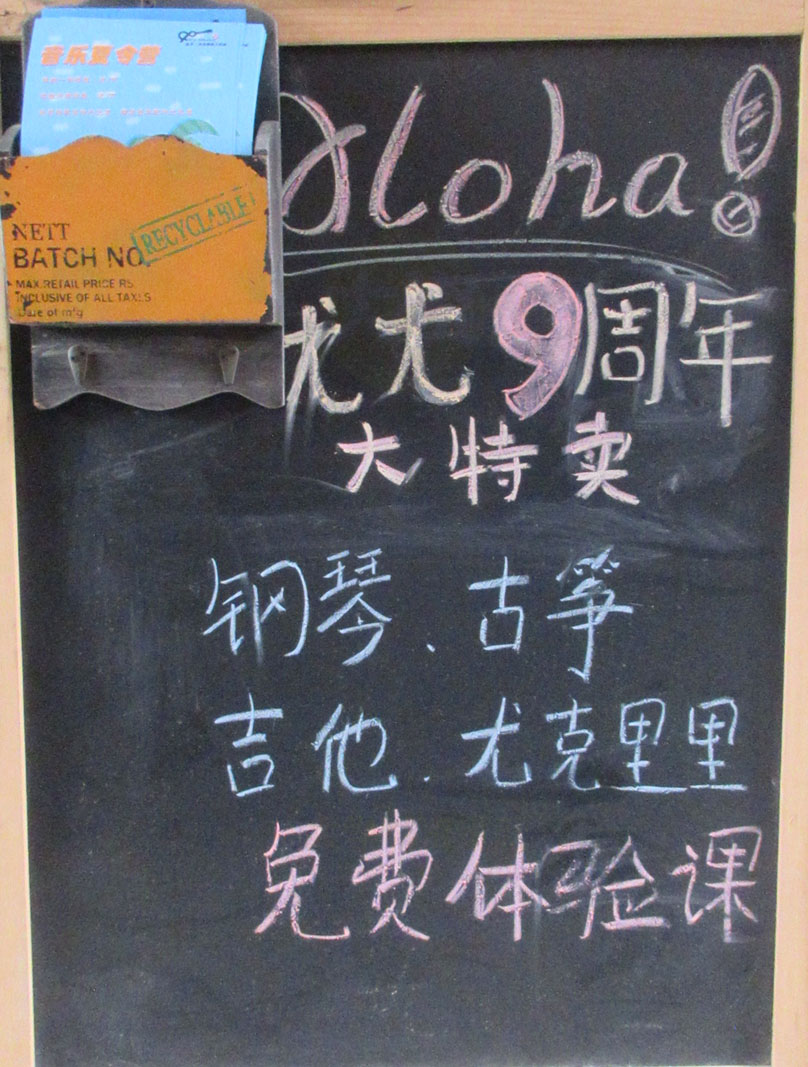 音乐夏令营
NETT
BATCH NO.
RECYCLABLE
MAX RETAIL PRICE RS.
INCLUSIVE OF ALL TAXES
Date of mfg
Aloha!
尤尤9周年
大特卖
钢琴、古筝
吉他、尤克里里
免费体验课